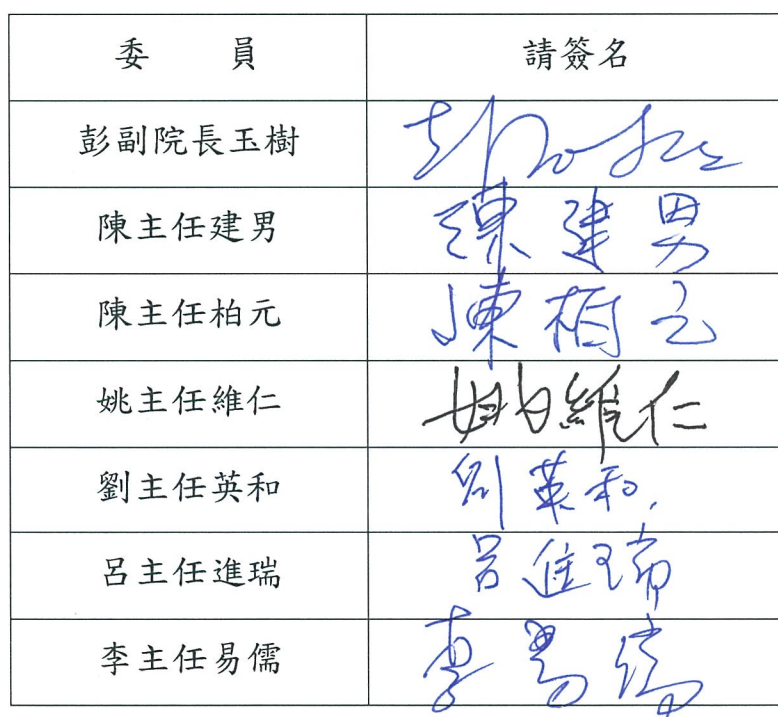 委 員 請簽名
彭副院長玉樹
陳主任建男 陳建男
陳主任柏元 陳柏元
姚主任維仁 姚維仁
劉主任英和 劉英和
呂主任進瑞 呂進瑞
李主任易儒 李易儒